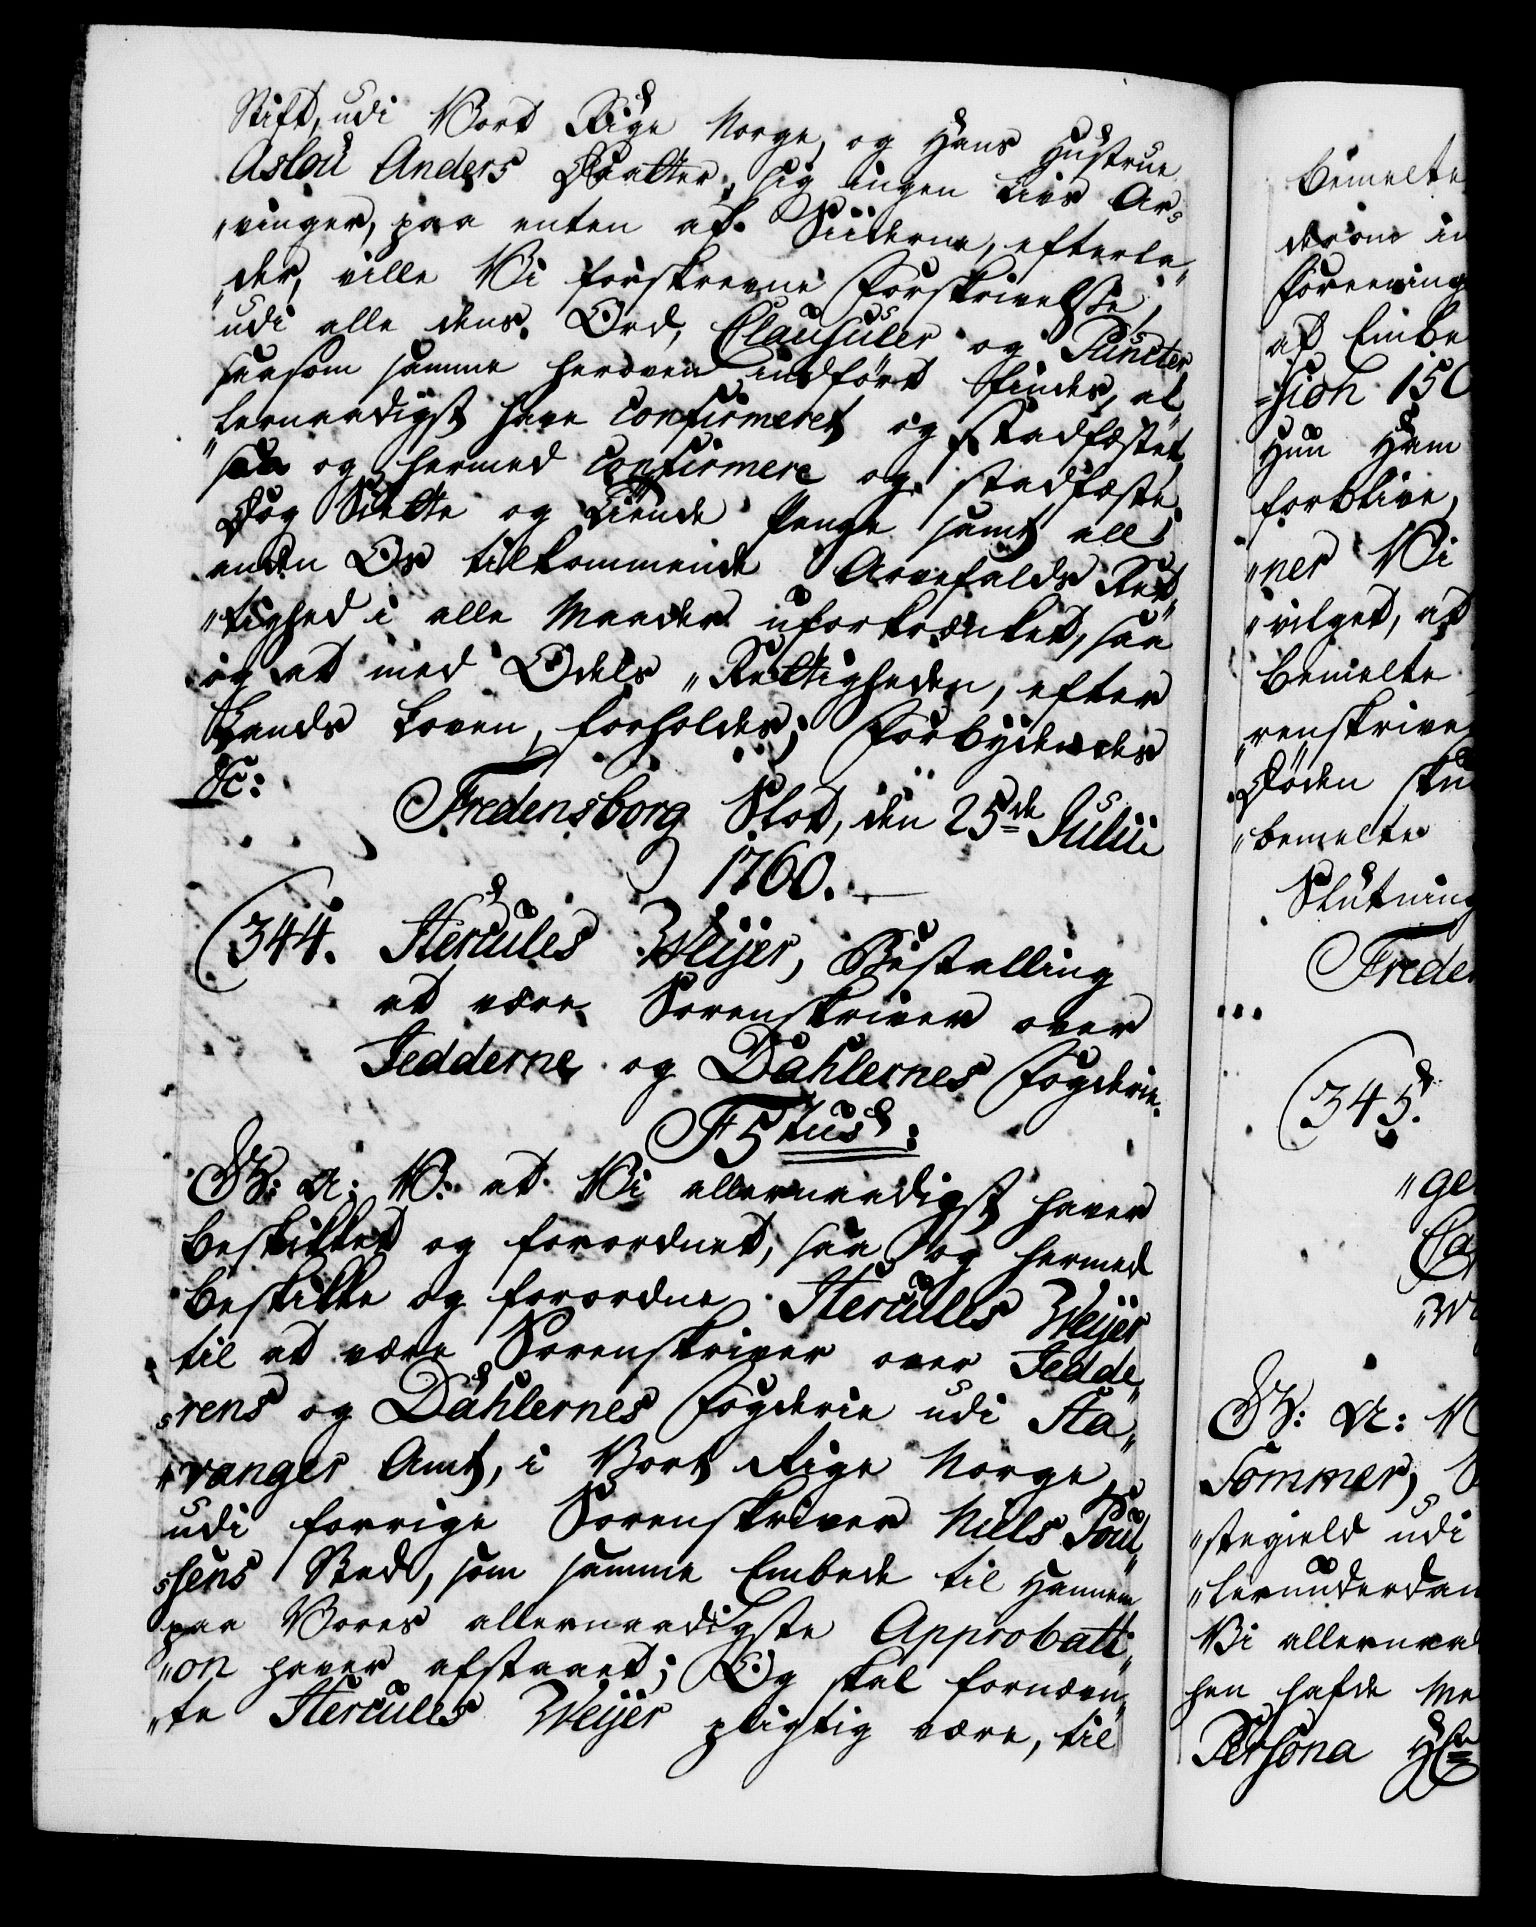 Stift, udi Vort Rige Norge, og Hans Hustrue
Aslou Anders Daatter, sig ingen Livs Ar„
„vinger, paa enten af Siiderne, efterla„
„der, ville Vi forskrevne Forskrivelse,
udi alle dens Ord, Clausuler og Puncter,
saasom samme heroven indført findes, al„
„lernaadigst have Confirmeret og stadfæstet,
saa og hermed Confirmere og stadfæste.
Dog Siette og Tiende Penge samt all
anden Os tilkommende Arvefalds Ret„
„tighed i alle Maader uforkrænket, saa
og at med Odels „Rettigheden, efter
Lands Loven, forholdes; Forbydendes
&c:
Fredensborg Slot, den 25de Julii
1760.
(344. Hercules Weijer, Bestalling
at være Sorenskriver over
Jedderne og Dahlernes Fogderie.
F5tus:
G: A: V: at Vi allernaadigst haver
beskikket og forordnet, saa og hermed
beskikke og forordne Hercules Weijer
til at være Sorenskriver over Jedde„
„rens og Dahlernes Fogderie udi Sta„
„vanger Amt, i Vort Rige Norge,
udi forrige Sorenskriver Niels Poul„
„sens Sted, som samme Embede til Hannem
paa Vores allernaadigste Approbati„
„on haver afstaaet; Og skal fornævn„
„te Hercules Weijer pligtig være, til
bemelte
derom in
Foreening
at Embe
„sion 150
Hun Ham
forblive,
„ner Vi
„vilget, at
bemelte
„renskrive
Døden sku
„bemelte
Slutning
Freden
(345.
„ge
Ca
„w
G: A: V
Sommer, S
„stegield udi
„lerunderdan
Vi allernaad
hen hafde Me
Persona Hr